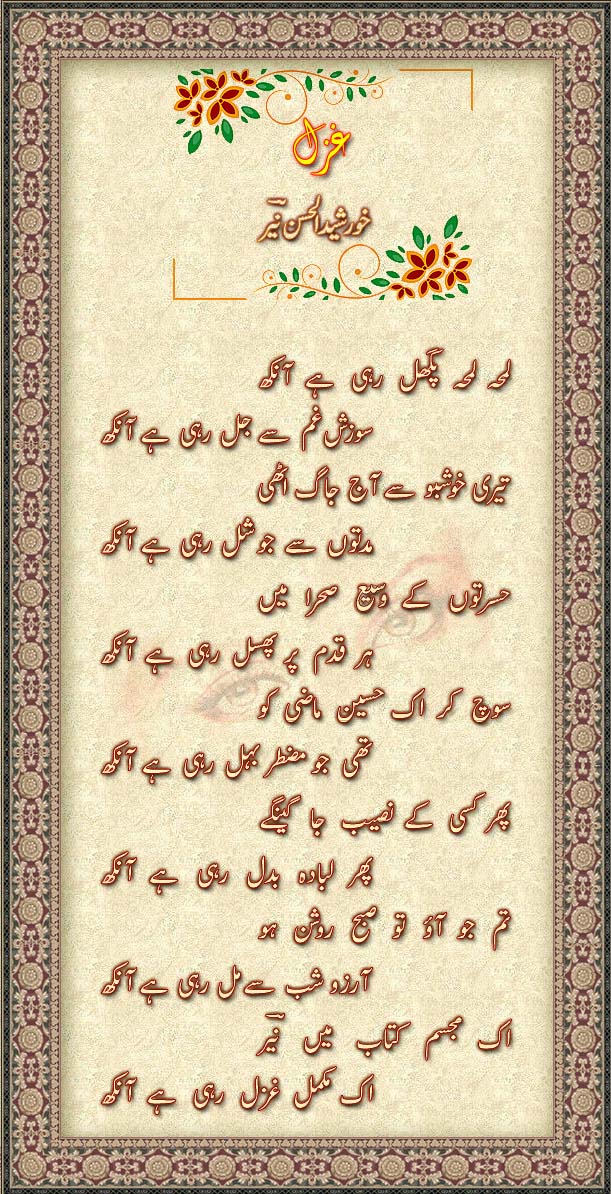 غزل
خورشید الحسن نیّر
لمحہ لمحہ پگھل رہی ہے آنکھ
سوزش غم سے جل رہی ہے آنکھ
تیری خوشبو سے آج جاگ اٹھی
مدتوں سے جو شل رہی ہے آنکھ
حسرتوں کے وسیع صحرا میں
ہر قدم پر پھسل رہی ہے آنکھ
سوچ کر اک حسین ماضی کو
تھی جو مضطر بہل رہی ہے آنکھ
پھر کسی کے نصیب جا گینگے
پھر لبادہ بدل رہی ہے آنکھ
تم جو آؤ تو صبح روشن ہو
آرزو شب سے مل رہی ہے آنکھ
اک مجسم کتاب میں نیّر
اک مکمل غزل رہی ہے آنکھ